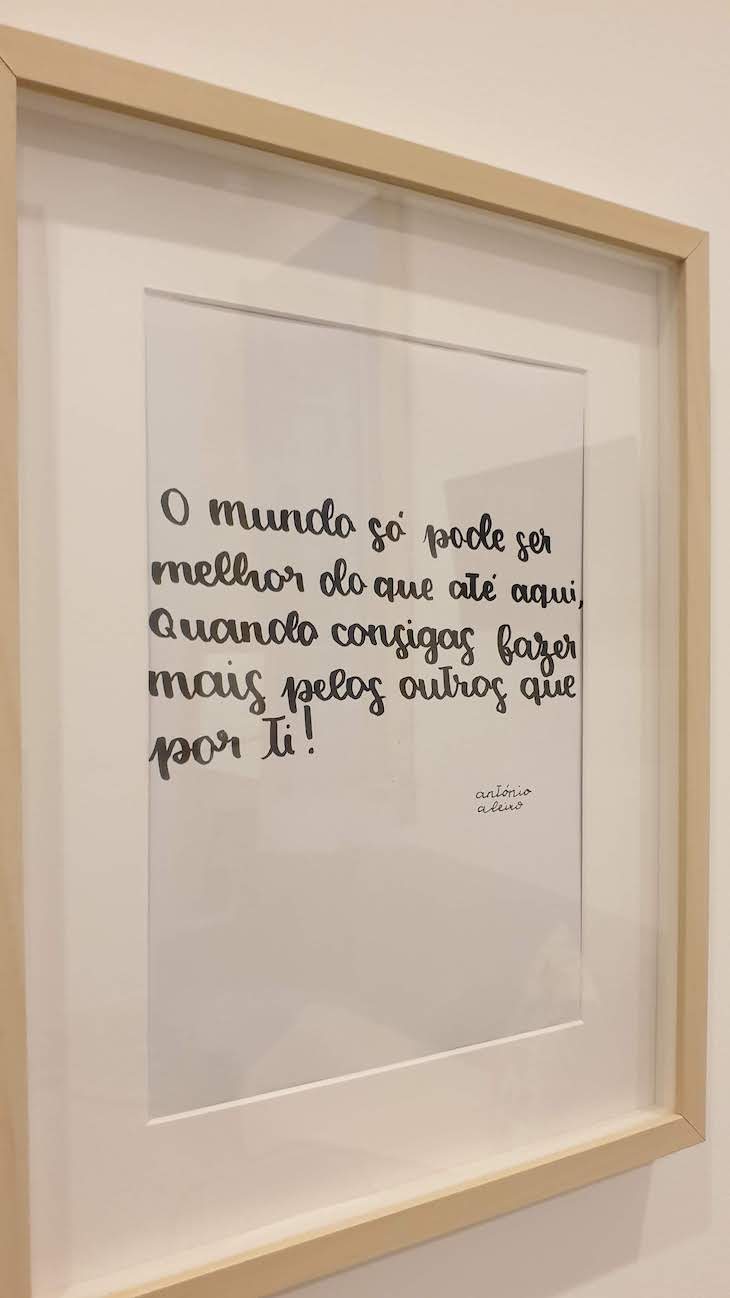 O mundo só pode ser
melhor do que até aqui,
Quando consigas fazer
mais pelos outros que
por ti!
antónio
aleixo